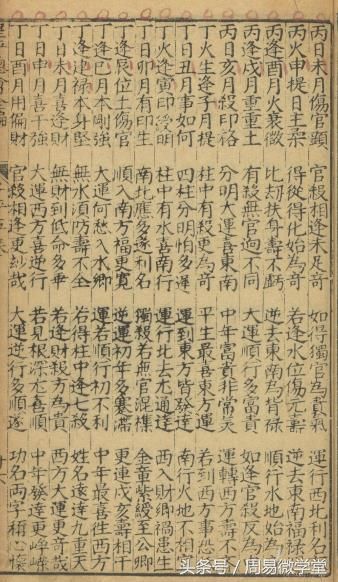 丙日未月傷官顯 官殺相逢未足奇 如得獨官為貴氣 運行西北利名
丙火申提日主柔 得從得化始為奇 若逢水位傷元壽 逆去東南福祿
丙逢酉月火衰微 比刼扶身壽不虧 逆去東南為背祿 順行水地始為
丙逢戌月重重土 有殺無官迥不同 大運順行多富貴 如逢官殺反為
丙日亥月殺印俻 分明大運喜東南 中年富貴非常美 運轉西方壽不
丁火生逢子月提 柱中有殺更為奇 平生最喜東方運 若到西方事恐
丁日丑月事如何 四柱分明怕多逢 運到東方皆發達 南行火地不相
丁火逢寅印綬明 柱中有水喜南行 運行北去尤通達 西入財鄉禍患生
丁日卯月有印生 南北應多遂利名 獨殺若無官混襍 金章紫綬至公卿
丁逢辰位土傷官 順入南方福更寬 逆運初年多蹇滯 更連戌亥壽相干
丁逢巳月本剛強 大運何愁入水鄉 運若順行初不利 中年最喜徃西方
丁逢建祿本身堅 無水須防壽不全 若得柱中逢七殺 姓名遠達九重天
丁日未月喜逢財 無財到低命多乖 若逢財殺方為貴 西方大運更奇哉
丁日申月喜干強 大運西方喜逆行 若見根深尤喜順 中年發達更崢嶸
丁日酉月用偏財 官殺相逢更妙哉 大運逆行多順遂 功名兩字稱心懷
头条号 / 周易微学堂